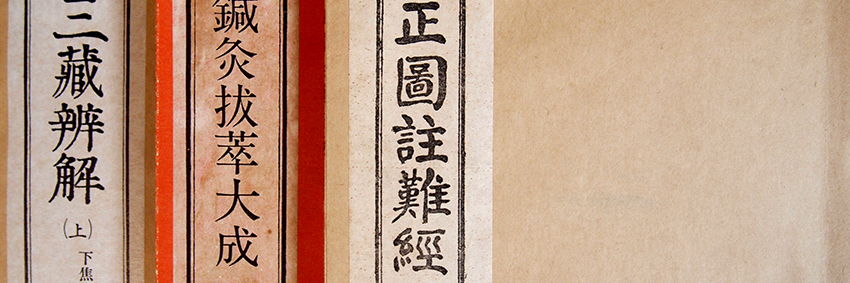 三藏辨解
(上)
下焦
鍼灸拔萃大成
正圖註難經